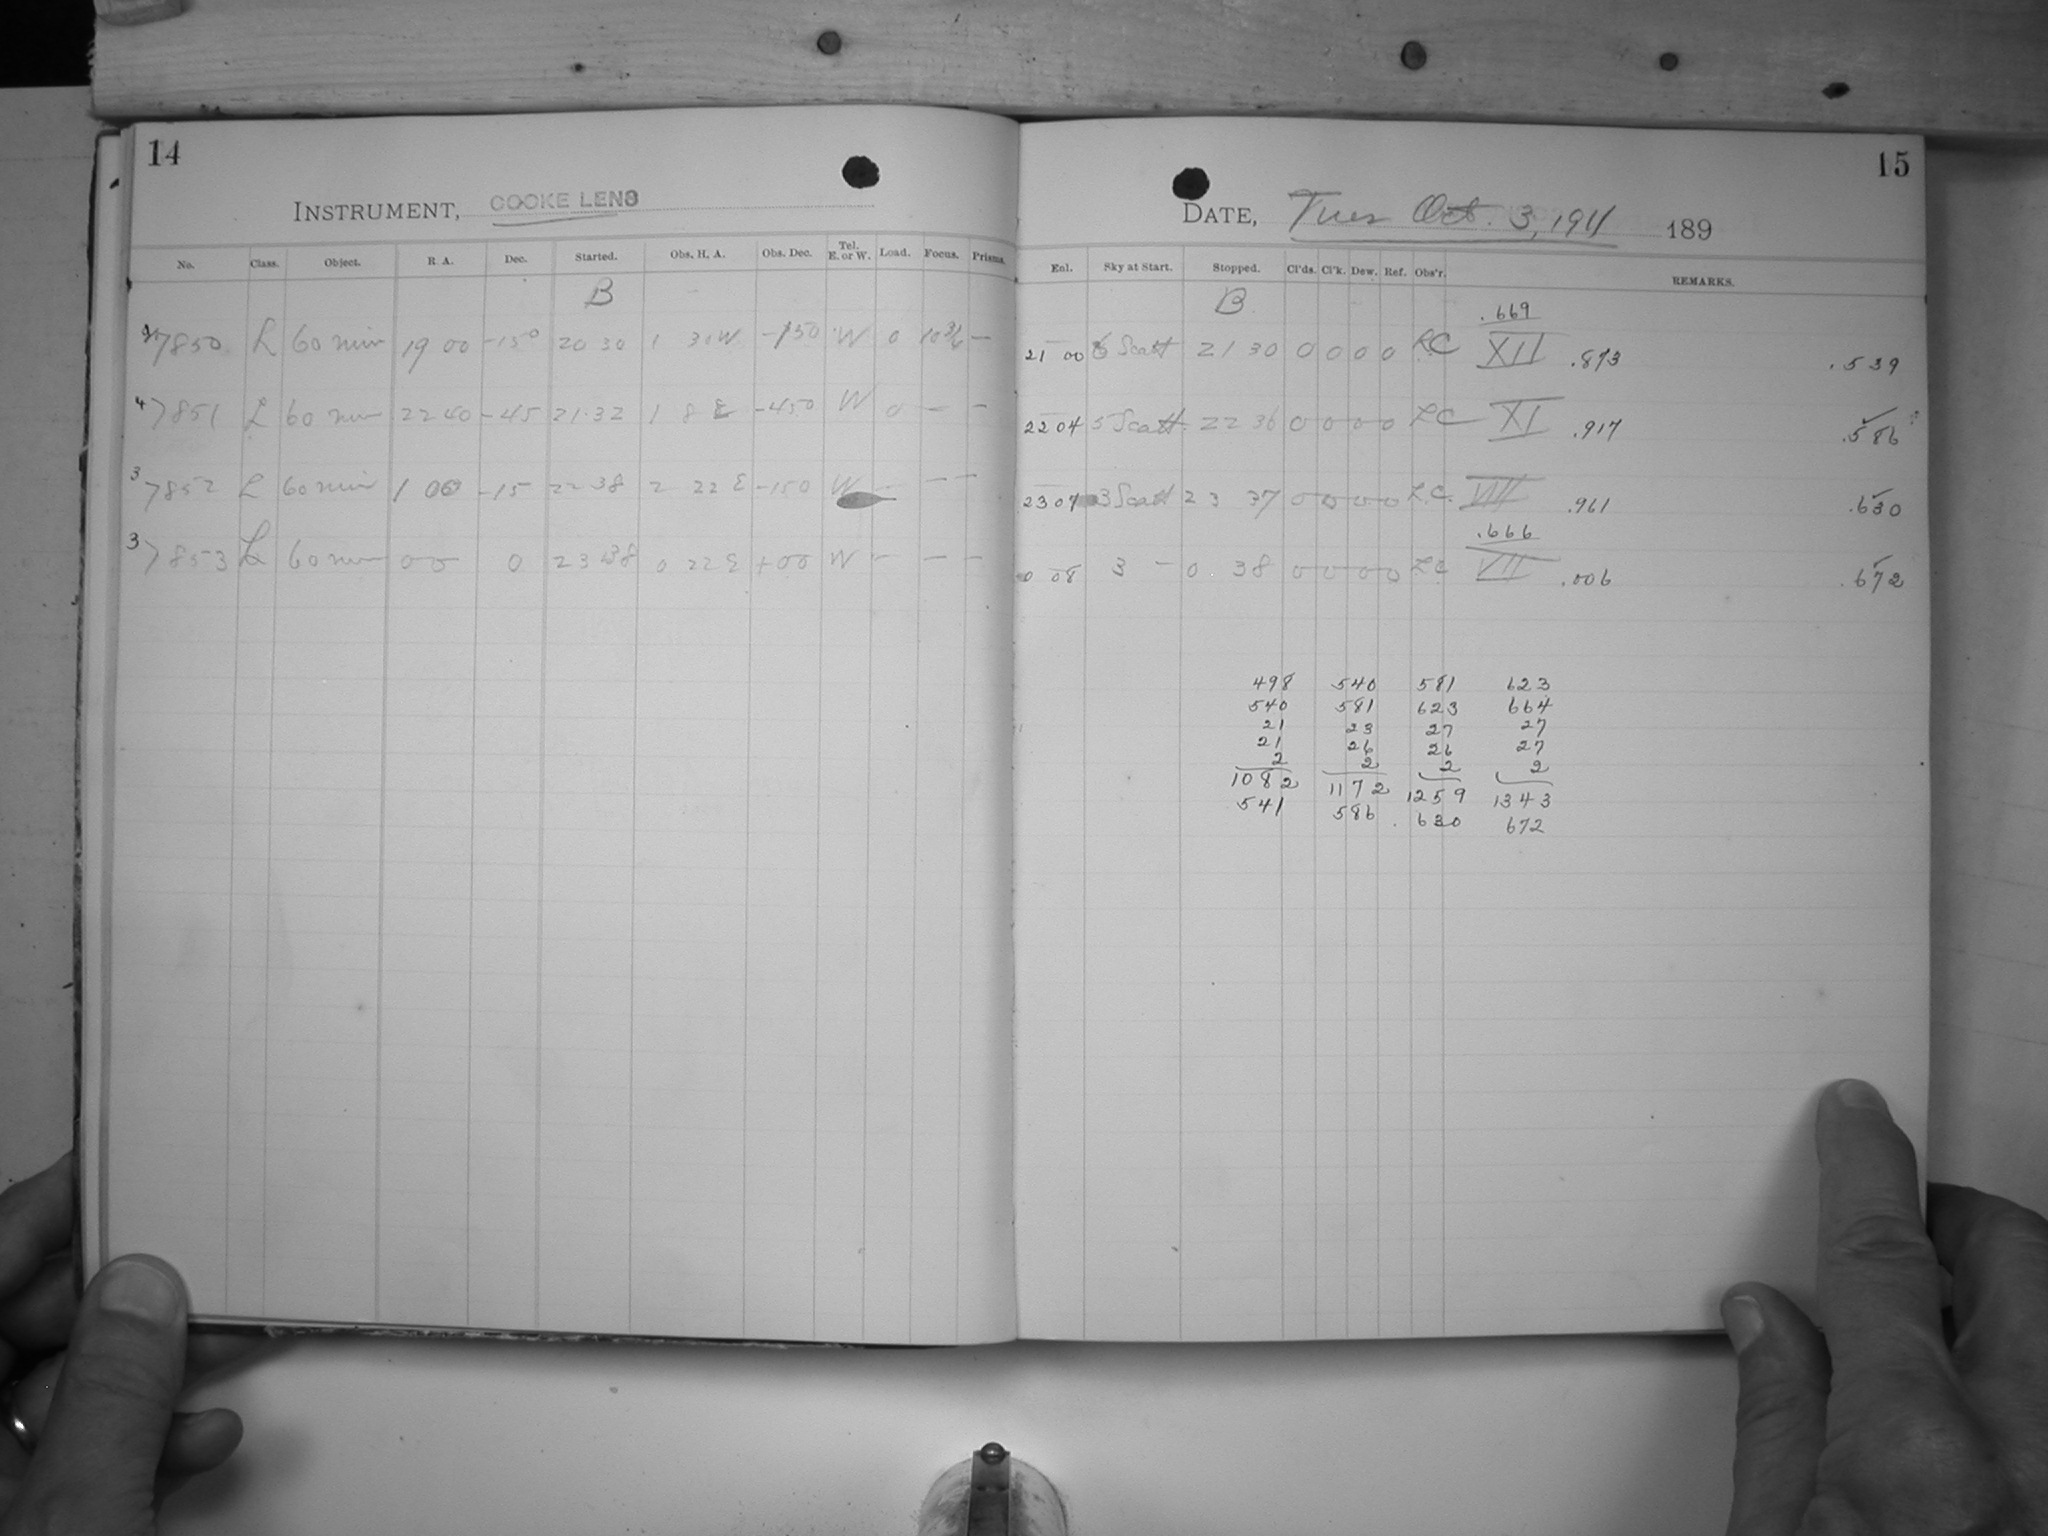 14
INSTRUMENT, COOKE LENS
No. Class. Object. R A. Dec. Started. Obs. H. A. Obs. Dec. Tel. E. or W. Load. Focus. Prisms.
B
7850 L 60 min 19 00 -15 0 20 30 1 30 W -150 W 0 —
4 7851 L 60 min 22 40 -45 21 32 1 8 E -450 W 0 — —
3 7852 L 60 min 1 00 -15 22 38 2 22 E -150 W — — —
3 7853 L 60 min 00 0 23 38 0 22 E +00 W — — —
15
DATE, Tues Oct. 3, 1911 189
Enl. Sky at Start. Stopped. Cl'ds. Cl'k. Dew. Ref. Obs'r. REMARKS.
B
.669
21 00 6 Scatt 21 30 0 0 0 0 LC XII .873 .539
22 04 5 Scatt. 22 36 0 0 0 0 LC XI .917 .586
23 07 3 Scatt 23 37 0 0 0 0 L.C. VIII .961 .630
.666
0 08 3 — 0 38 0 0 0 0 LC VII .006 .672
498 540 581 623
540 581 623 664
21 23 27 27
21 26 26 27
2 2 2 2
1082 1172 1259 1343
541 586 .630 672